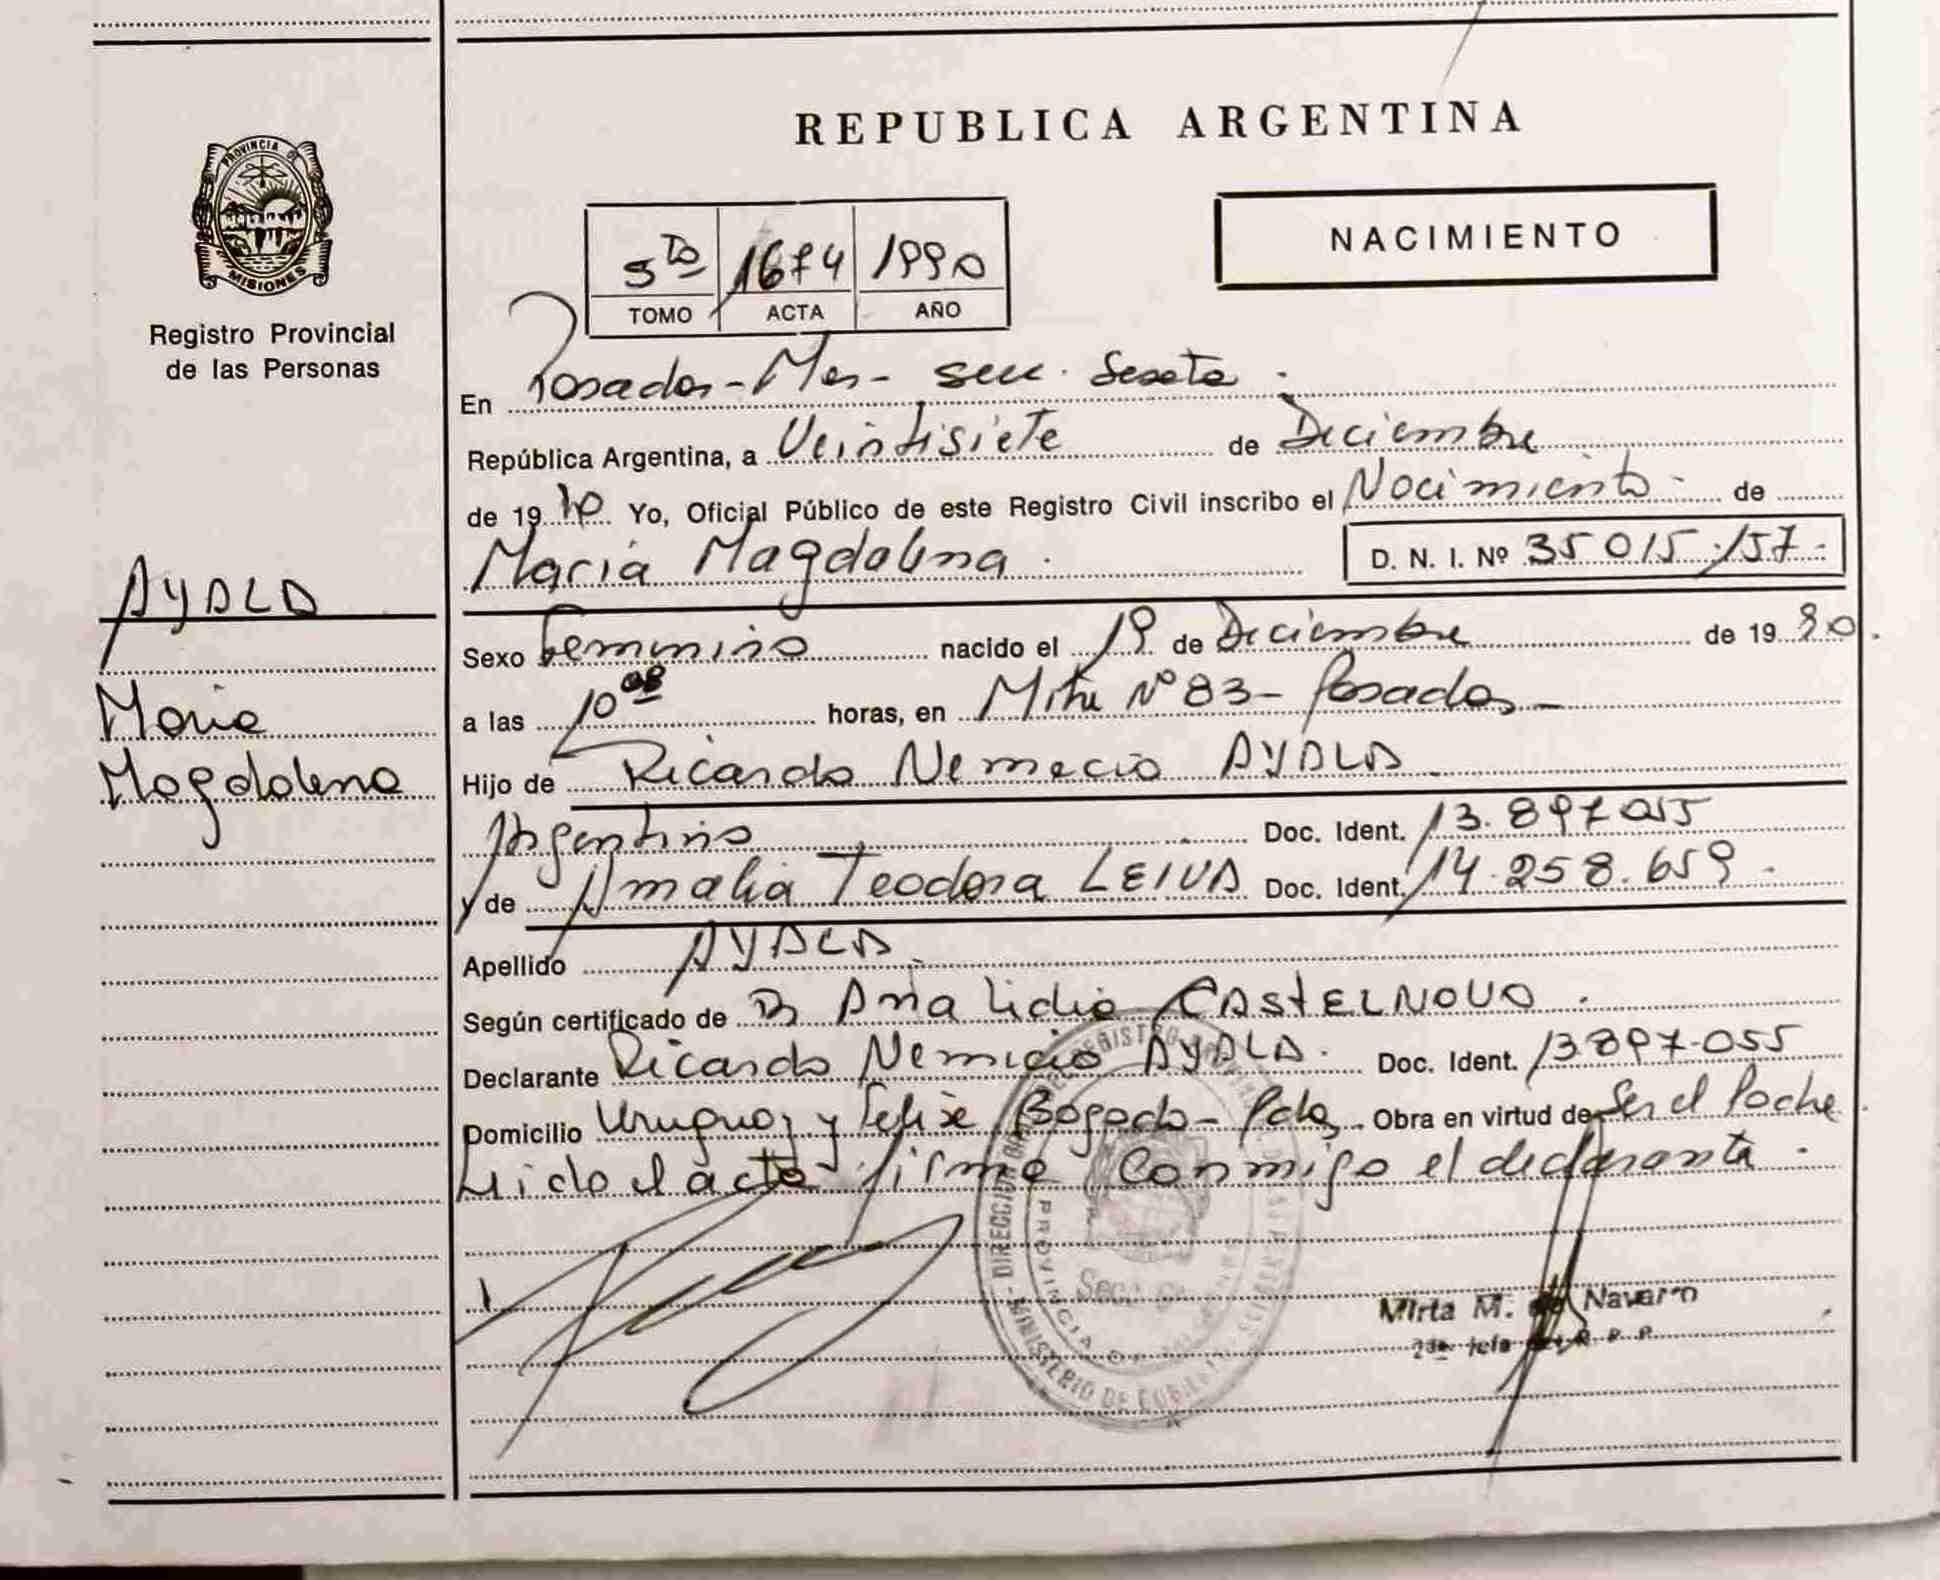 PROVINCIA DE
MISIONES
Registro Provincial
de las Personas
AYALA
Maria
Magdalena
REPUBLICA ARGENTINA
NACIMIENTO
5to 1674 1990
TOMO ACTA AÑO
En Posadas - Mnes - secc. Sexta.
República Argentina, a Veintisiete de Diciembre
de 1990 Yo, Oficial Público de este Registro Civil inscribo el Nacimiento - de
Maria Magdalena. D. N. I. Nº 35 015.157-
Sexo Femenino nacido el 19 de Diciembre de 1990.
a las 10 horas, en Mitre Nº 83 - Posadas -
Hijo de Ricardo Nemecio AYALA
Argentino Doc. Ident. 13.897055
y de Amalia Teodora LEIVA Doc. Ident. 14.258.659.
Apellido AYALA
Según certificado de Ana Lidia CASTELNOVO.
Declarante Ricardo Nemicio AYALA. Doc. Ident. 13897.055
Domicilio Uruguay y Felix Bogado - Pdas. Obra en virtud de Ser el Padre
Leido el acta firma Conmigo el declarante.
DIRECCION REGISTRO
PROVINCIA DE
MINISTERIO DE GOBIERNO
Mirta M. de Navarro